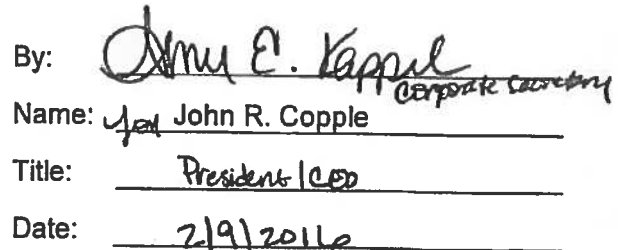 By: Amy E. Kappel
Corporate Secretary
Name: for John R. Copple
Title: President/CEO
Date: 2/9/2016